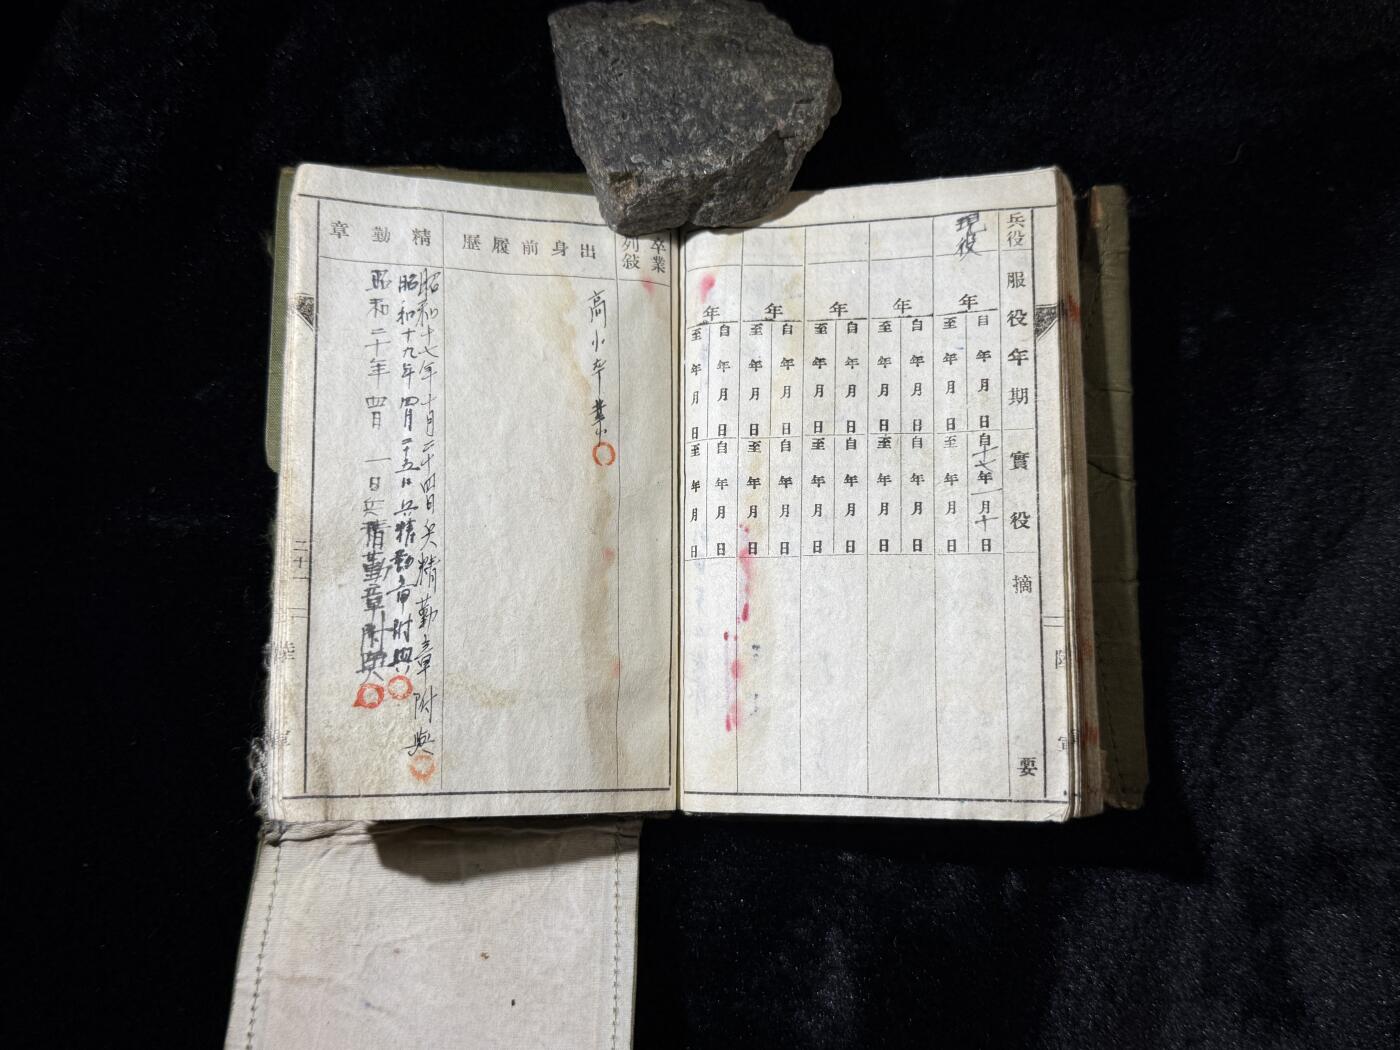 兵役
現役
服役年期
年
自 年 月 日
至 年 月 日
年
自 年 月 日
至 年 月 日
年
自 年 月 日
至 年 月 日
年
自 年 月 日
至 年 月 日
年
自 年 月 日
至 年 月 日
實役
自十七年一月十日
至 年 月 日
自 年 月 日
至 年 月 日
自 年 月 日
至 年 月 日
自 年 月 日
至 年 月 日
自 年 月 日
至 年 月 日
摘要
卒業
列敍
出身前履歷
高小卒業
精勤章
昭和十七年十月二十四日兵精勤章附與
昭和十九年四月二十五日兵精勤章附與
昭和二十年四月一日兵精勤章附與
二十一
陸軍